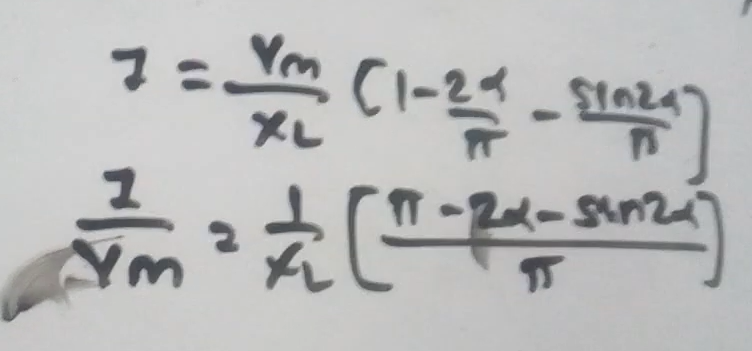 I = Vm/XL [1 - 2α/π - sin2α/π]
I/Vm = 1/XL [π - 2α - sin2α/π]